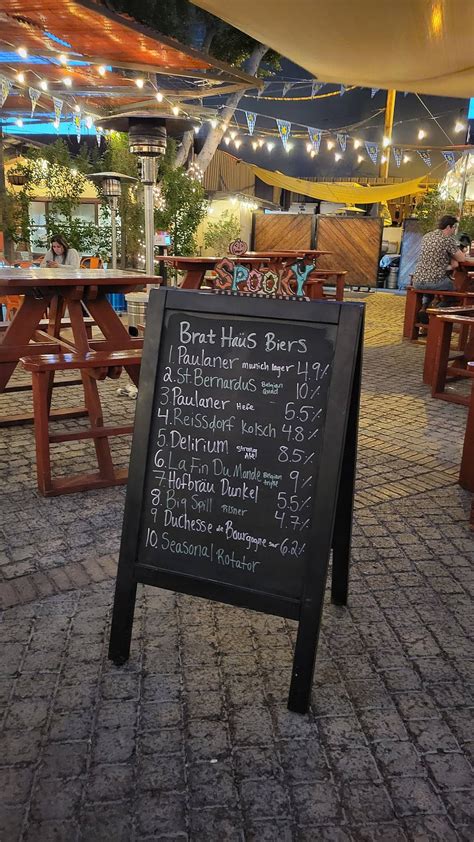 SPOOKY
Brat Haüs Biers
1 Paulaner munich lager 4.9%
2. St. Bernardus Belgian Quad 10%
3 Paulaner Hefe 5.5%
4. Reissdorf Kolsch 4.8%
5. Delirium strong Ale 8.5%
6. La Fin Du Monde Belgian 9%
7. Hofbräu Dunkel 5.5%
8. Big Spill Pilsner 4.7%
9 Duchesse de Bourgogne sour 6.2%
10. Seasonal Rotator